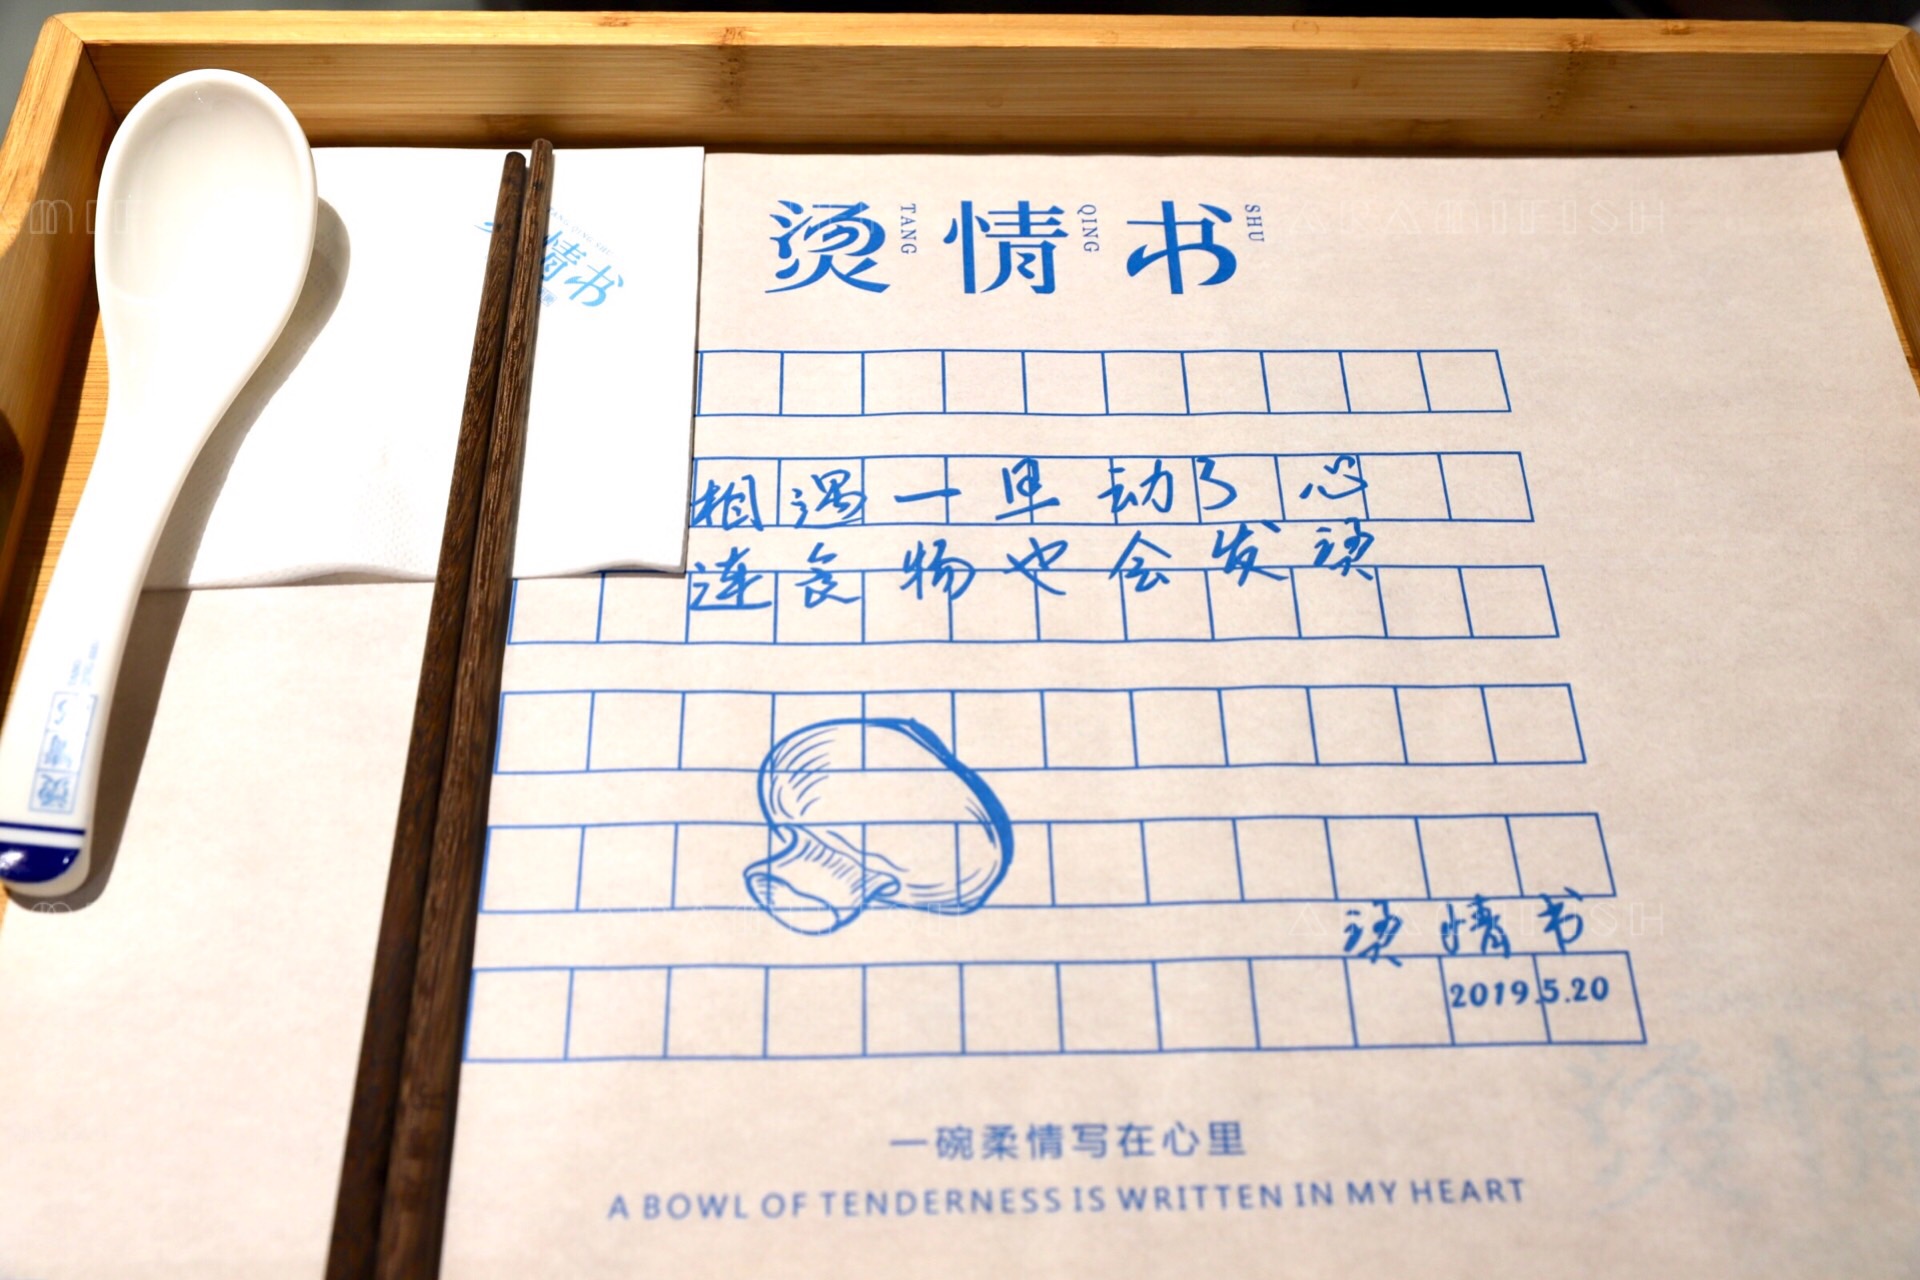 烫情书
TANG QING SHU
情书
相遇一旦动了心
连食物也会发烫
烫情书
2019.5.20
一碗柔情写在心里
A BOWL OF TENDERNESS IS WRITTEN IN MY HEART